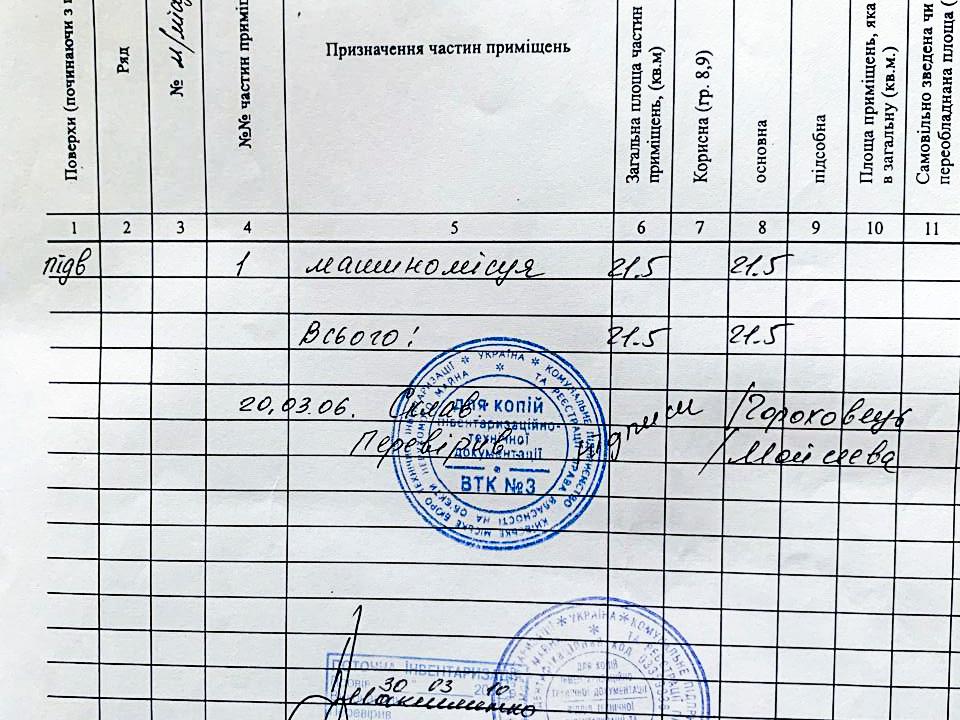 Поверхи (починаючи з
Ряд
№ м/місця
№№ частин приміщ
Призначення частин приміщень
Загальна площа частин приміщень, (кв.м)
Корисна (гр. 8,9)
основна
підсобна
Площа приміщень, яка
в загальну (кв.м.)
Самовільно зведена чи
переобладнана площа (
1 2 3 4 5 6 7 8 9 10 11
підв 1 машиномісця 21.5 21.5
Всього: 21.5 21.5
20.03.06. Склав підписи /Гороховець
Перевірив /Мойсеєва
УКРАЇНА * КОМУНАЛЬНЕ ПІДПРИЄМСТВО
КИЇВСЬКЕ МІСЬКЕ БЮРО ТЕХНІЧНОЇ ІНВЕНТАРИЗАЦІЇ
ТА РЕЄСТРАЦІЇ ПРАВА ВЛАСНОСТІ НА ОБ'ЄКТИ НЕРУХОМОГО МАЙНА
ДЛЯ КОПІЙ
інвентаризаційно-
технічної
документації
ВТК №3
УКРАЇНА * КОМУНАЛЬНЕ
ДЛЯ КОПІЙ
ІНВЕНТАРИЗАЦІЙНО
ТЕХНІЧНОЇ ДОКУМЕНТАЦІЇ
ПОТОЧНА ІНВЕНТАРИЗАЦІЯ
30 03 10
Перевірив